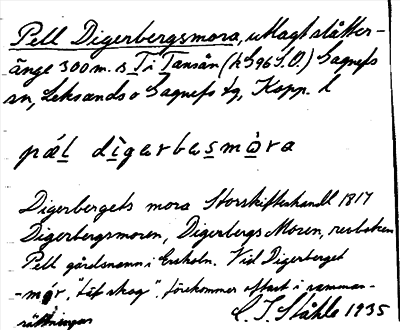 Pell Digerbergsmora, utlagt slåtter-
änge 300 m. s Ti Tansån (k S96 S.O.) Gagnefs
sn, Leksands o Gagnefs tg, Kopp. l
pæl digərbəsmòra
Digerbergets mora Storskifteshandl 1817
Digerbergsmoren, Digerbergs Moren, resboken
Pell gårdsnamn i Ersholn. Vid Digerberget
-mór, "tät skog", förekommer oftast i samman-
sättningar
C. I. Ståhle 1935